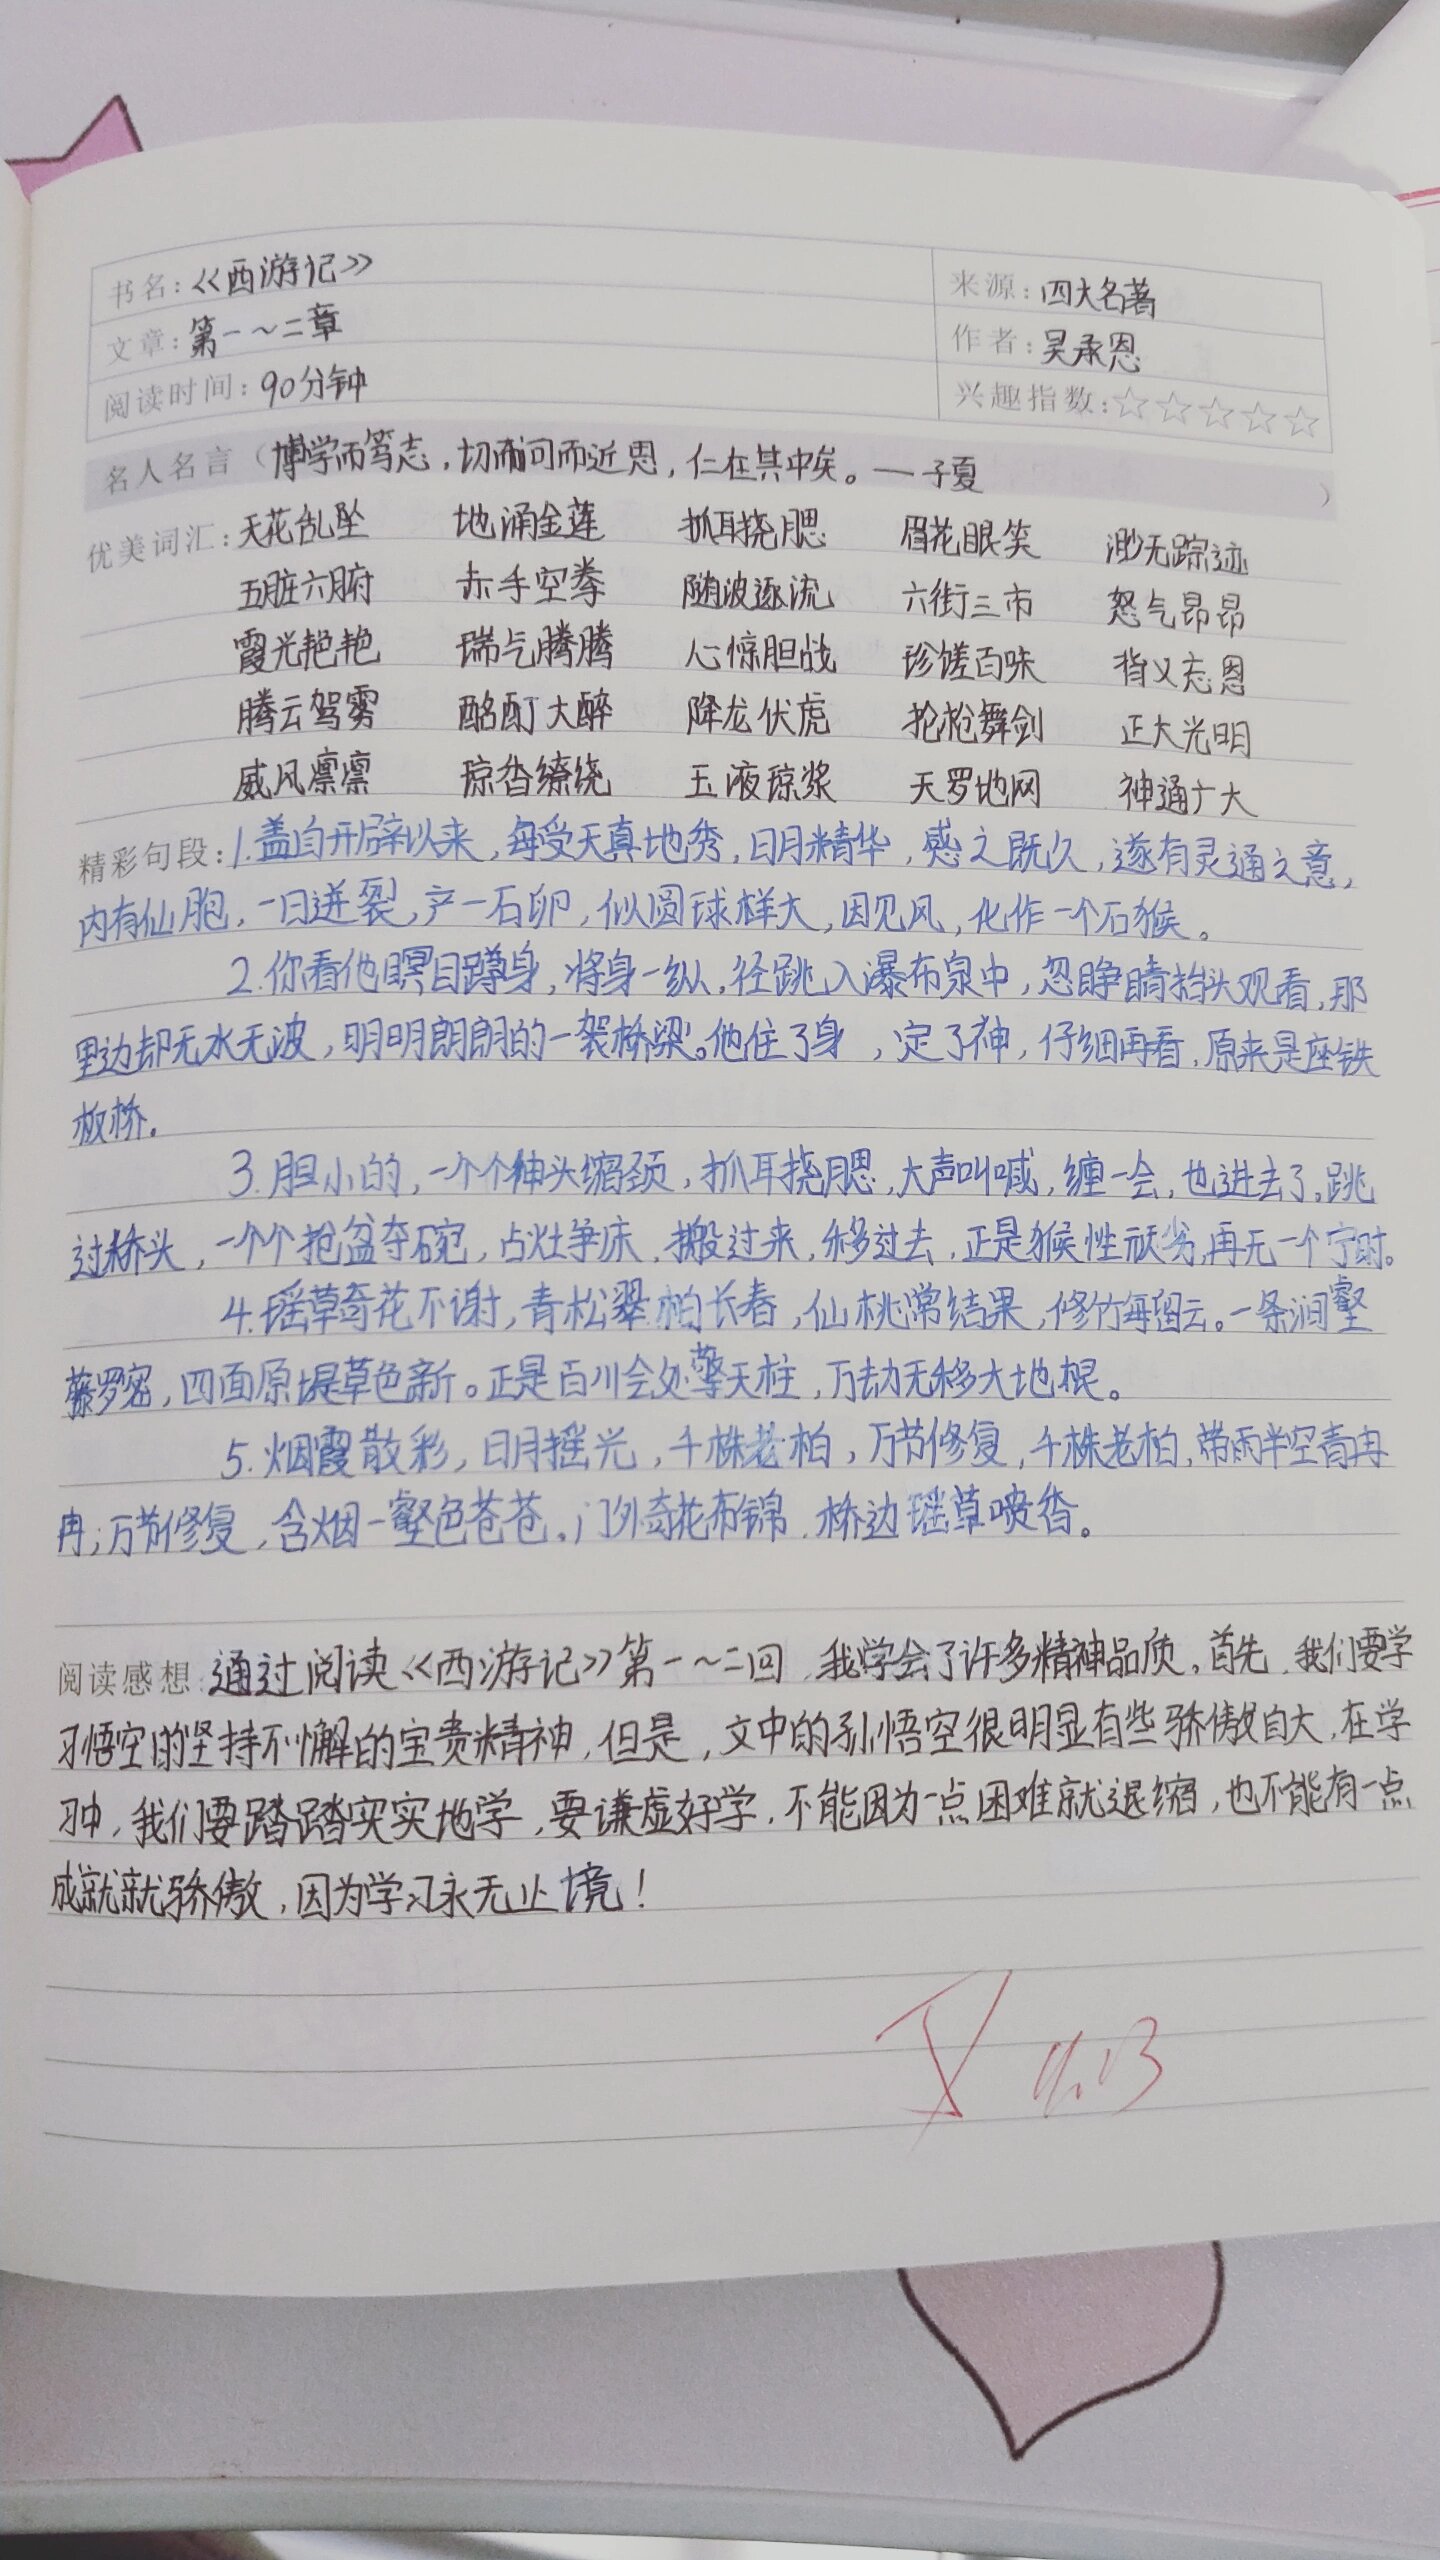 书名：《西游记》 来源：四大名著
文章：第一～二章 作者：吴承恩
阅读时间：90分钟 兴趣指数：☆☆☆☆☆
名人名言（博学而笃志，切而问而近思，仁在其中矣。——子夏）
优美词汇：天花乱坠 地涌金莲 抓耳挠腮 眉花眼笑 渺无踪迹
五脏六腑 赤手空拳 随波逐流 六街三市 怒气昂昂
霞光艳艳 瑞气腾腾 心惊胆战 珍馐百味 背义忘恩
腾云驾雾 酩酊大醉 降龙伏虎 抡枪舞剑 正大光明
威风凛凛 琼香缭绕 玉液琼浆 天罗地网 神通广大
精彩句段：1.盖自开辟以来，每受天真地秀，日月精华，感之既久，遂有灵通之意，
内有仙胞，一日迸裂，产一石卵，似圆球样大，因见风，化作一个石猴。
2.你看他瞑目蹲身，将身一纵，径跳入瀑布泉中，忽睁睛抬头观看，那
里边却无水无波，明明朗朗的一架桥梁。他住了身，定了神，仔细再看，原来是座铁
板桥。
3.胆小的，一个个伸头缩颈，抓耳挠腮，大声叫喊，缠一会，也进去了。跳
过桥头，一个个抢盆夺碗，占灶争床，搬过来，移过去，正是猴性顽劣，再无一个宁时。
4.瑶草奇花不谢，青松翠柏长春，仙桃常结果，修竹每留云。一条涧壑
藤罗密，四面原堤草色新。正是百川会处擎天柱，万劫无移大地根。
5.烟霞散彩，日月摇光，千株老柏，万节修复，千株老柏，带雨半空青冉
冉；万节修复，含烟一壑色苍苍。门外奇花布锦，桥边瑶草喷香。
阅读感想：通过阅读《西游记》第一～二回，我学会了许多精神品质。首先，我们要学
习悟空的坚持不懈的宝贵精神，但是，文中的孙悟空很明显有些骄傲自大，在学
习中，我们要踏踏实实地学，要谦虚好学，不能因为一点困难就退缩，也不能有一点
成就就骄傲，因为学习永无止境！